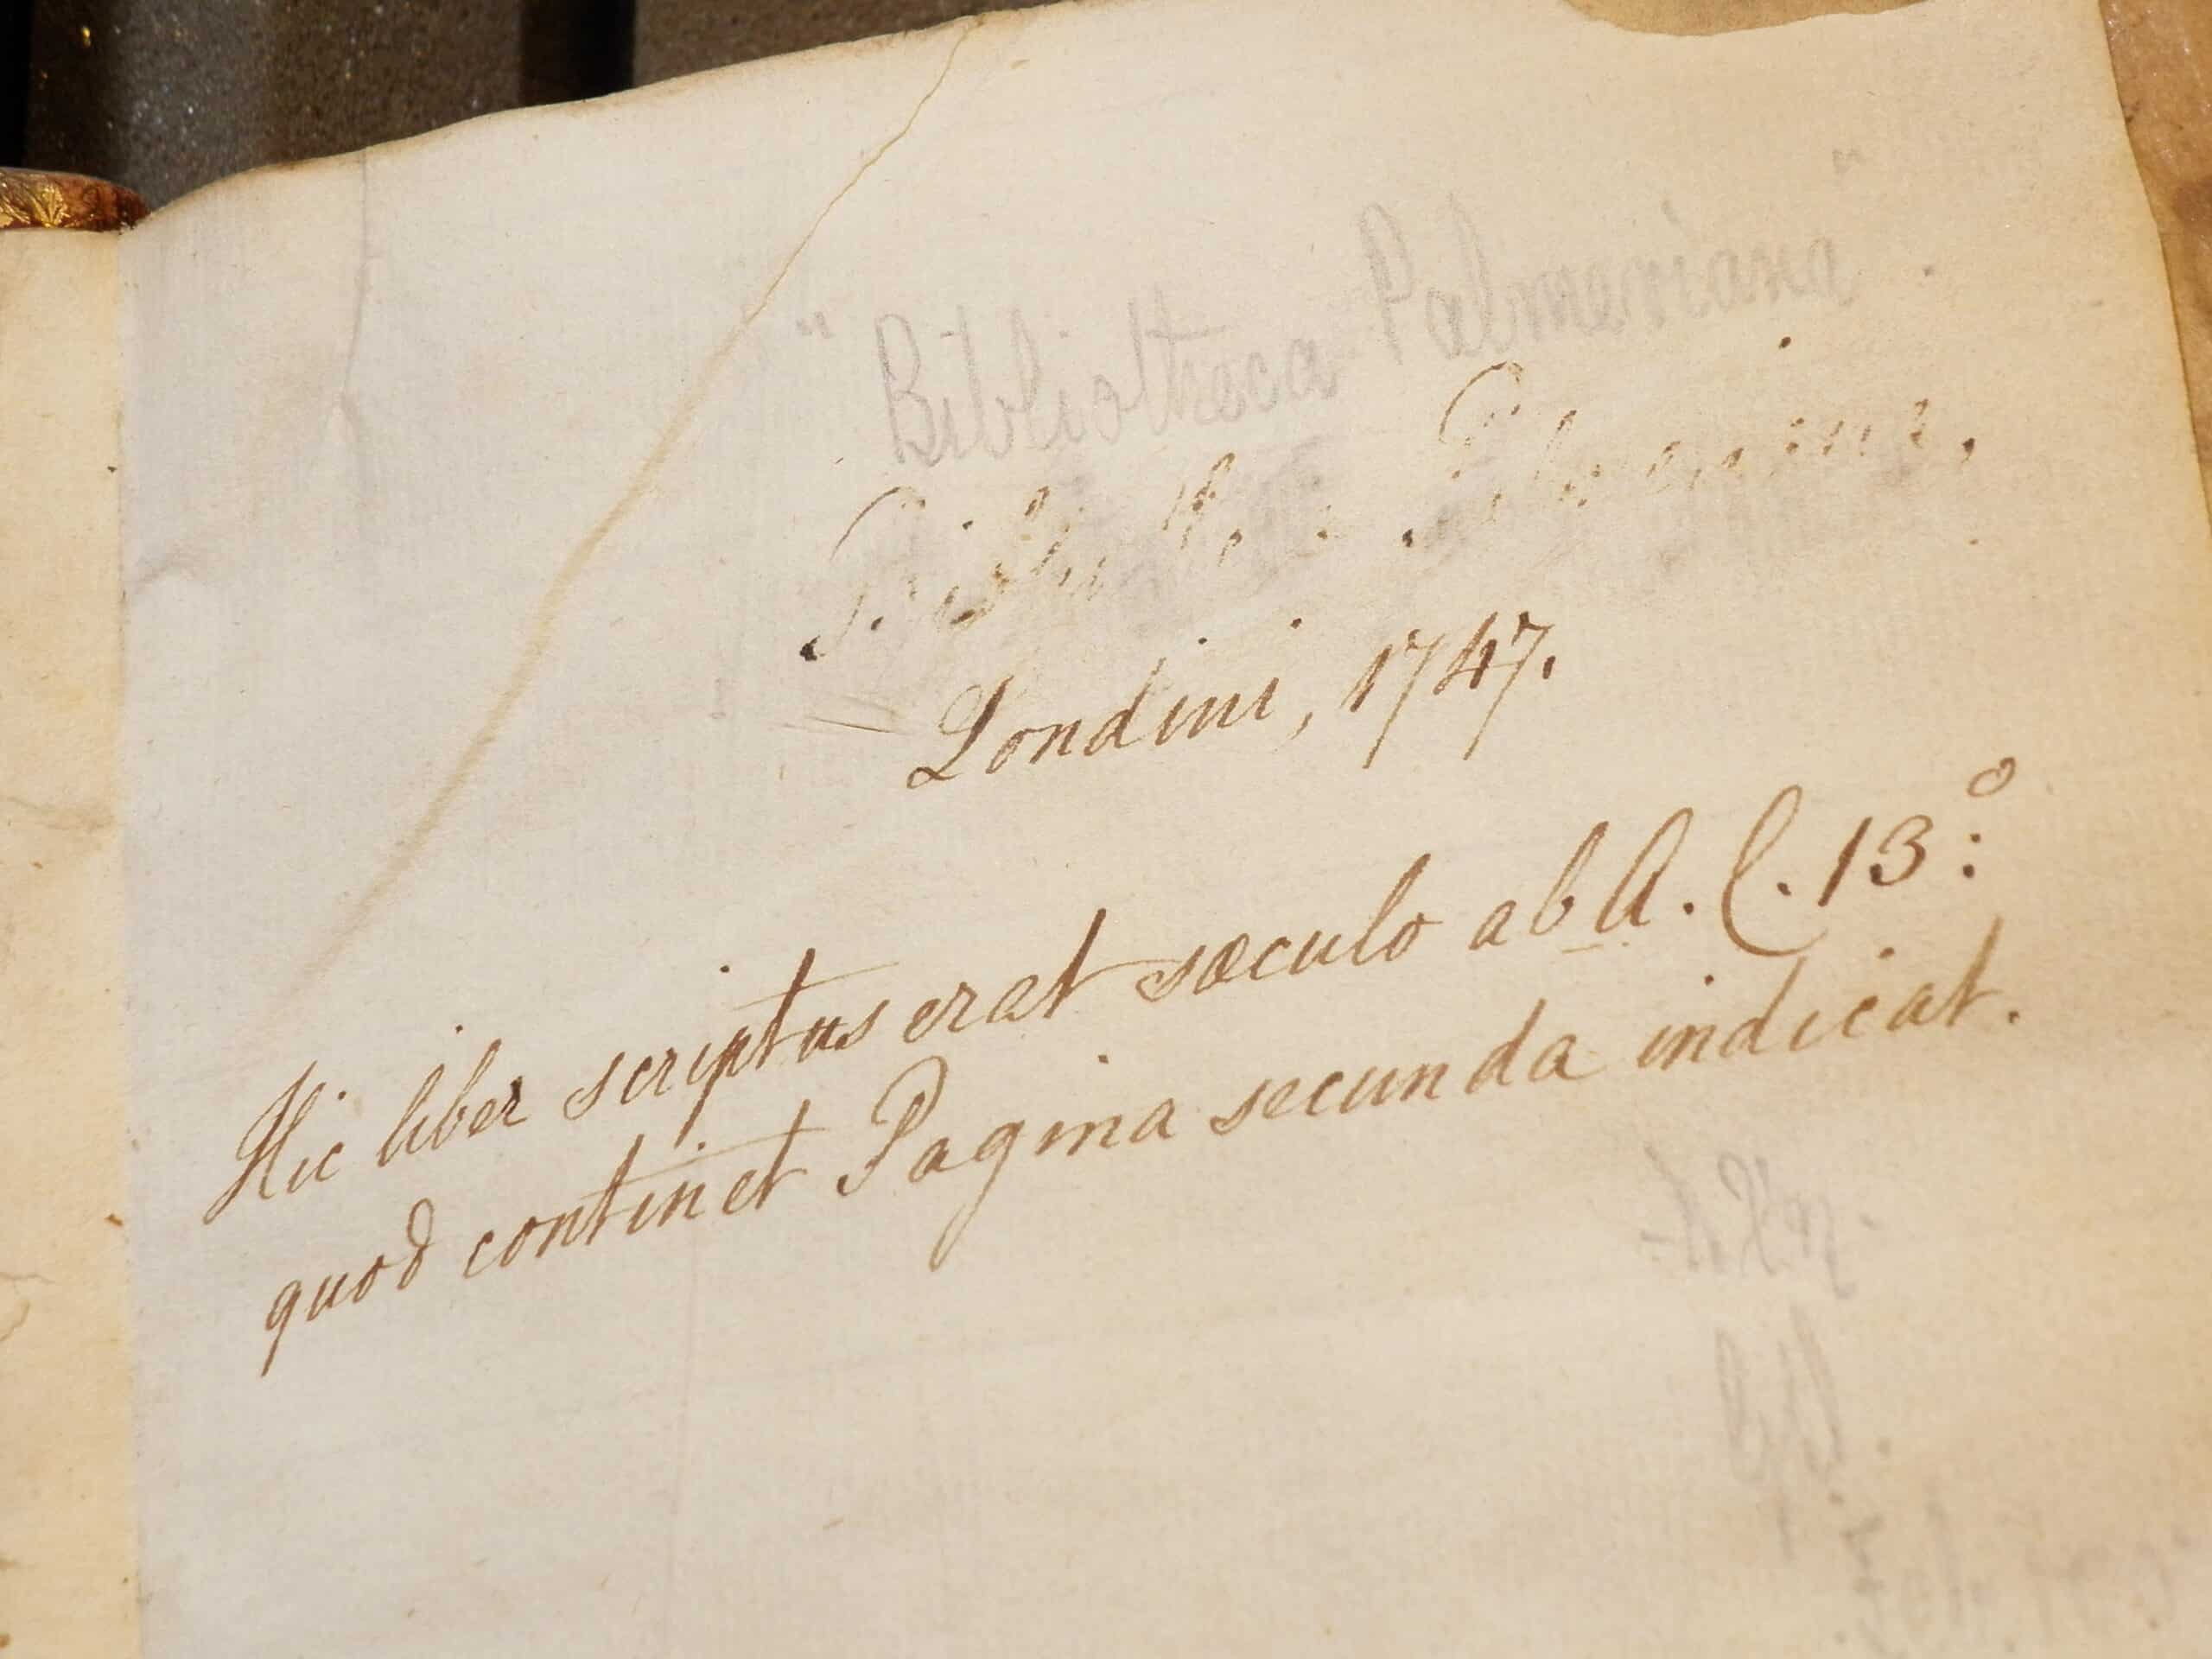 "Bibliotheca Palmeriana"
Bibliotheca Palmeriana,
Londini, 1747.
Hic liber scriptus erat sæculo ab A. C. 13:º
quod continet Pagina secunda indicat.